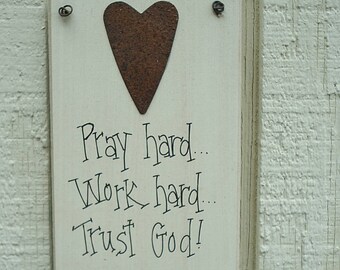 Pray hard...
Work hard...
Trust God!